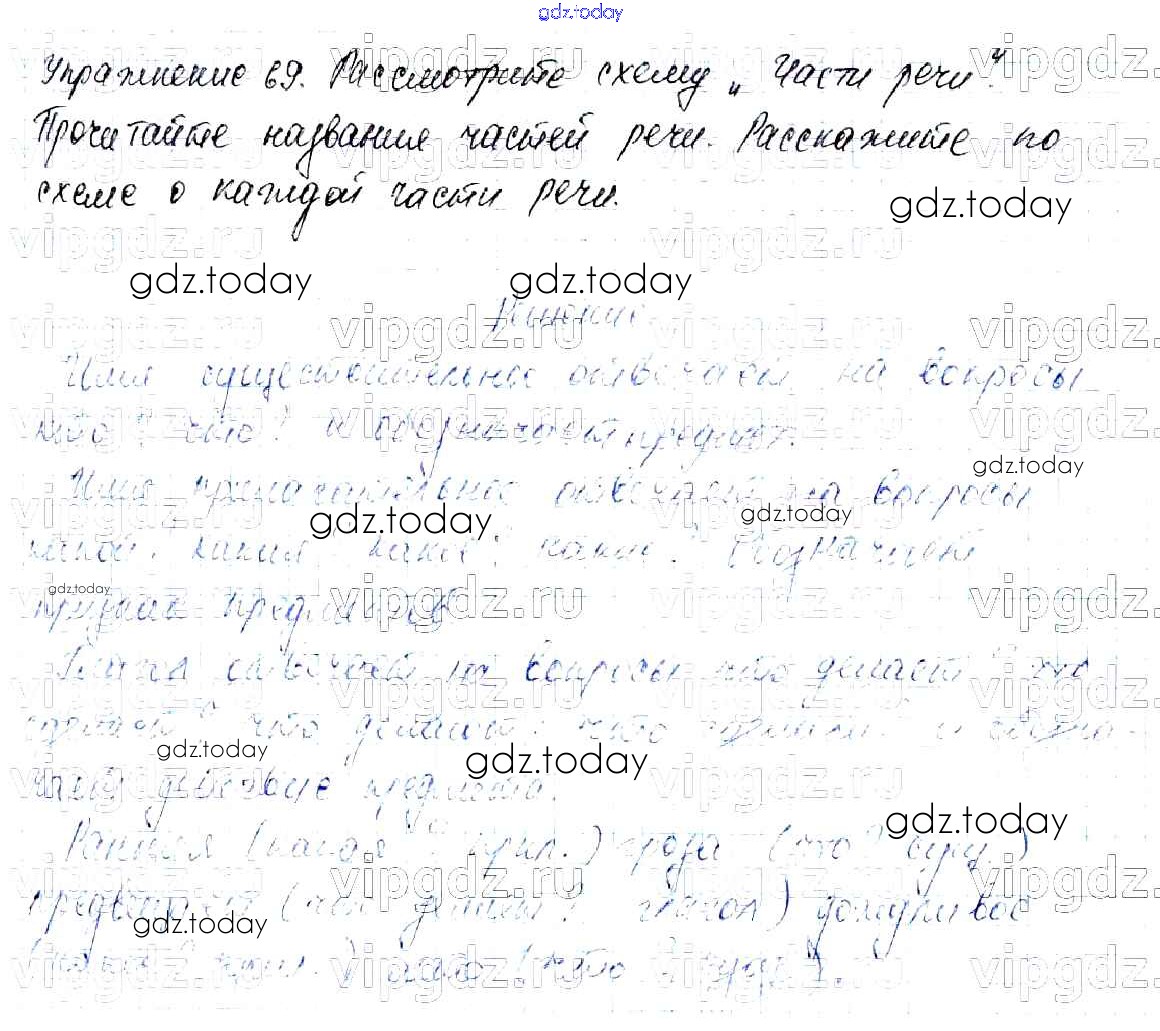 gdz.today
Упражнение 69. Рассмотрите схему „Части речи“.
Прочитайте названия частей речи. Расскажите по
схеме о каждой части речи.
gdz.today
gdz.today gdz.today
Решение
Имя существительное отвечает на вопросы
кто? что? и обозначает предмет.
gdz.today
Имя прилагательное отвечает на вопросы
gdz.today gdz.today
какой? какая? какое? какие? Обозначает
gdz.today
признак предметов
Глагол отвечает на вопросы что делает? что
что делают? что и обозна-
gdz.today gdz.today
чает действие предмета.
gdz.today
Ранняя (какая? прил.) гроза (что? сущ.)
предвещает (что делает? глагол) дождливое
gdz.today
прил.) лето (что? сущ.).
vipgdz.ru